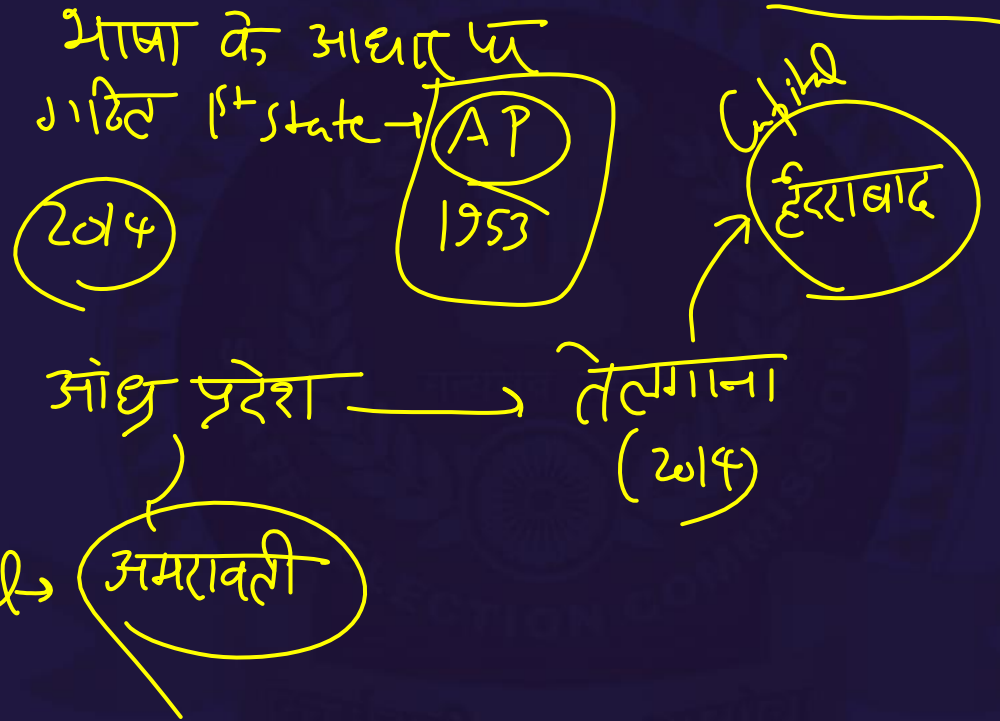 भाषा के आधार पर
गठित 1st State → AP
1953
2014
Capital
हैदराबाद
आंध्र प्रदेश → तेलगाना
(2014)
→ अमरावती